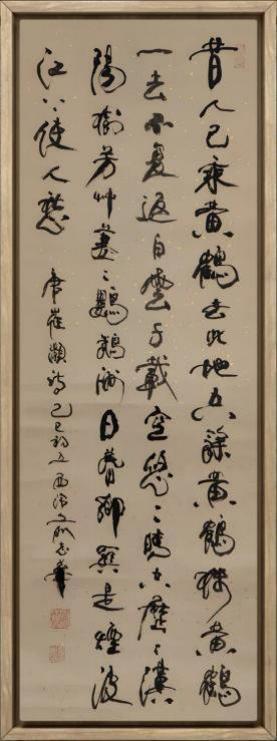 昔人已乘黄鶴去此地空餘黄鶴樓黄鶴
一去不復返白雲千載空悠〻晴川歷〻漢
陽樹芳艸萋〻鸚鵡洲日暮鄉關是煙波
江上使人愁
唐崔顥詩己巳初夏西泠